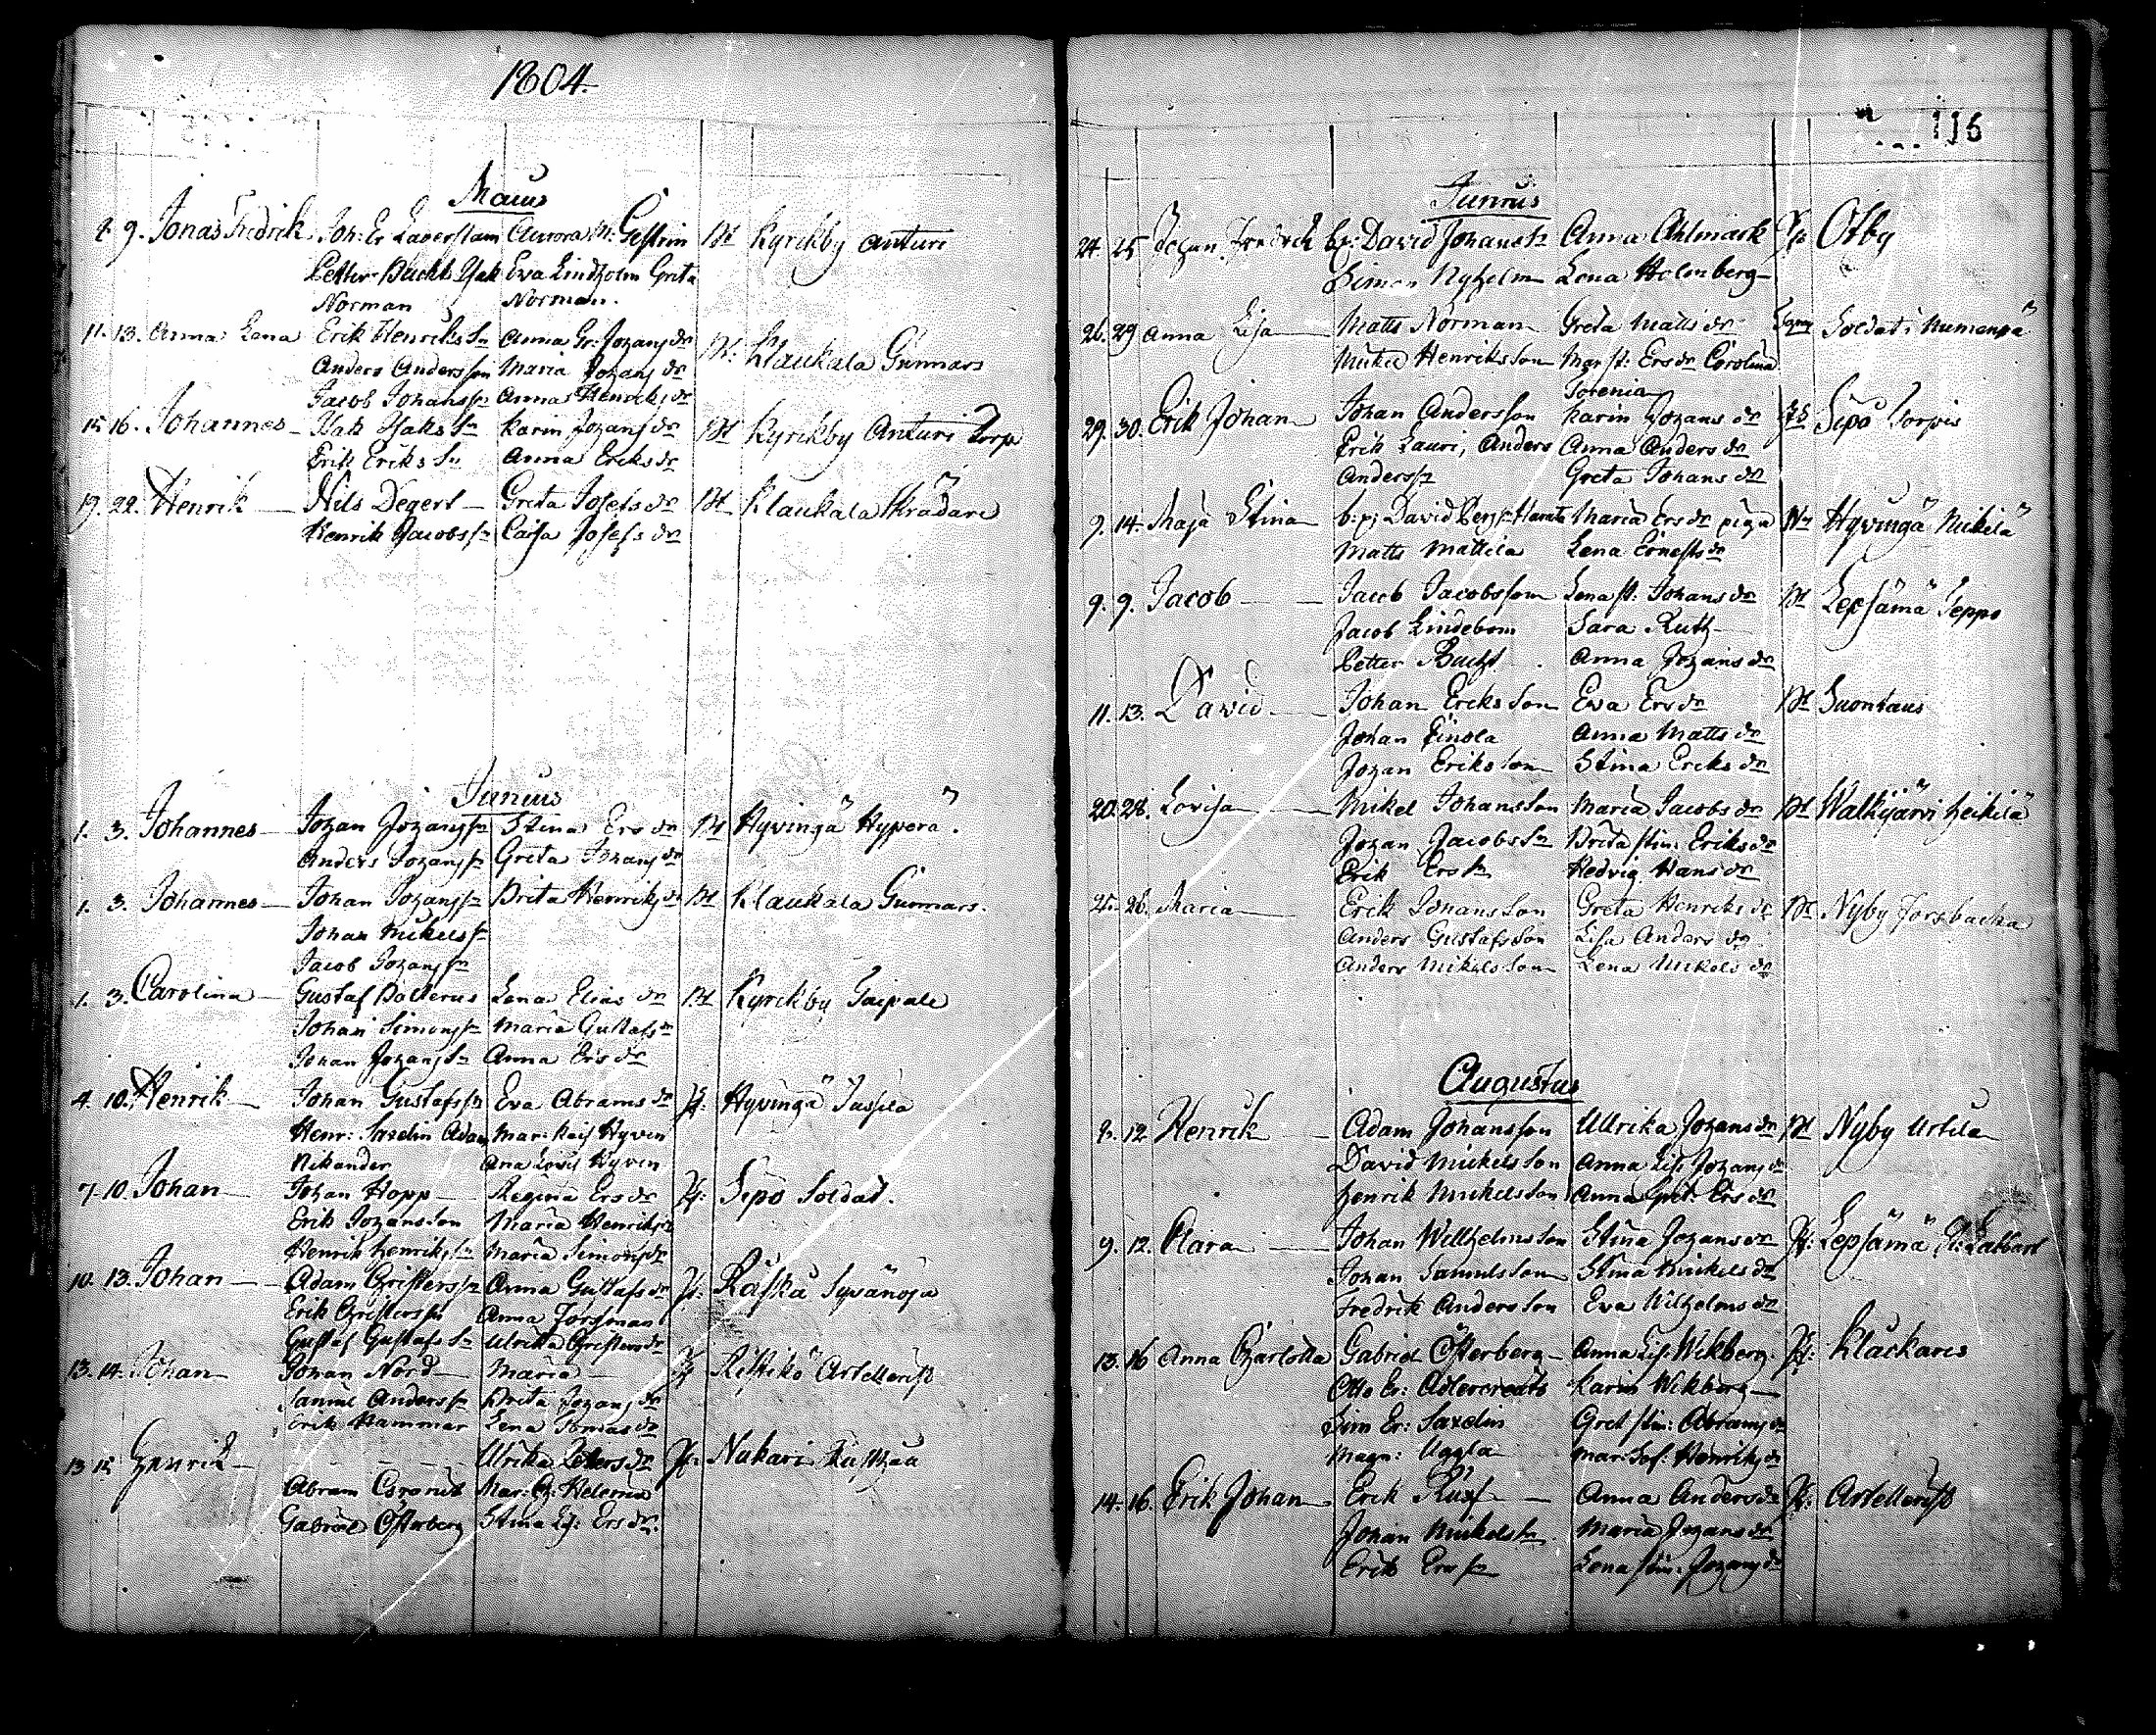 1804.
Maius
9. Jonas Fredrik Joh: Er Lagerstam Aurora M: Gestrin Bd Kyrikby Anturi
Petter Bucht Isak Eva Lindholm Greta
Norman Norman.
11. 13. Anna Lena Erik Henriks Sn Anna Gr: Johans dr Bd: Klaukala Gunnars
Anders Andersson Maria Johans dr
Jacob Johanss Sn Anna Henriks dr
15 16. Johannes Isak Isaks Sn Karin Johans dr Bd Kyrikby Anturi Torp
Erik Eriks Sn Anna Eriks dr
19. 22. Henrik Nils Degert Greta Josefs dr Bd Klaukala Skrädare
Henrik Jacobs Sn Caisa Josefs dr
Junius
1. 3. Johannes Johan Johans Sn Stina Ers dr Bd Hyvingä Hyperä.
Anders Johans Sn Greta Johans dr
1. 3. Johannes Johan Johans Sn Brita Henriks dr Bd Klaukala Gunnars.
Johan Mickels Sn
Jacob Johans Sn
1. 3. Carolina Gustaf Lena Elias dr Bd Kyrikby Taipale
Johan Simons Sn Maria Gustafs dr
Johan Johans Sn Anna Ers dr
4. 10. Henrik Johan Gustafs Sn Eva Abrams dr Hyvingä Jussila
Henr: Saxelin Adam Mar: Kajs Hyven
Nikander Ana Lovis Hyven
7. 10. Johan Johan Hopp Regina Ers dr Sepo Soldat.
Erik Johansson Maria Henriks dr
Henrik Henriks Sn Maria Simons dr
10. 13. Johan Adam Christers Sn Anna Gustafs dr Raskä Syvänoja
Erik Christers Sn Anna Forsman
Gustaf Gustafs Sn Ulrika Christers dr
13. 14. Johan Johan Nord Maria Artellerist
Samuel Anders Sn Brita Johans dr
Erik Hammar Lena Tomas dr
13 15 Henrik Ulrika Peters dr Nukari
Abram Mar: Ch: Helenius
Gabriel Österberg Stina Lis: Ers dr.
116
Junius
24. 25 Johan Fredrick Bf: David Johans Sn Anna Ahlmark Otby
Simon Nyholm Lena Holmberg
26. 29 Anna Lisa Matts Norman Greta Matts dr Soldat i Numenpä
Mickel Henriksson Mar st: Ers dr Carolina
29. 30. Erik Johan Johan Andersson Karin Johans dr Sepo Torpis
Erik Lauri, Anders Anna Anders dr
Anders Sn Greta Johans dr
9. 14. Maja Stina David Maria Ers dr piga Hyvingä Mikilä
Matts Mattila Lena Ernests dr
9. 9. Jacob Jacob Jacobsson Lena st: Johans dr Bd Lepsämä Seppo
Jacob Lindebom Sara Ruth
Petter Bucht Anna Johans dr
11. 13. David Johan Ericksson Eva Ers dr Bd Suontaus
Johan Anna Matts dr
Johan Eriksson Stina Ericks dr
20. 28. Lovisa Mikel Johansson Maria Jacobs dr Bd Walkijärvi Heikilä
Johan Jacobs Sn Brita Stin: Eriks dr
Erik Ers Sn Hedvig Hans dr
25. 26. Maria Erik Johansson Greta Henriks dr Bd Nyby Forsbacka
Anders Gustafsson Lisa Anders dr
Anders Mikelsson Lena Mikels dr
Augustus
9. 12 Henrik Adam Johansson Ullrika Johans dr Bd Nyby Urtila
David Mickelsson Anna Lis: Johans dr
Henrik Mickelsson Anna Gret: Ers dr
9. 12. Clara Johan Willhelmsson Stina Johans dr Lepsämä
Johan Samuelsson Stina Mickels dr
Fredrik Andersson Eva Wilhelms dr
13. 16 Anna Charlotta Gabriel Österberg Anna Lis: Wikberg Klackaris
Otto Er: Adlercreutz Karin Wikberg
Sim Er: Saxelin Gret Stin: Abrams dr
Magn: Uggla Mar: Sof: Henriks dr
14. 16. Erik Johan Erik Anna Anders dr Artellerist
Johan Mickels Sn Maria Johans dr
Erik Ers Sn Lena Stin: Johans dr